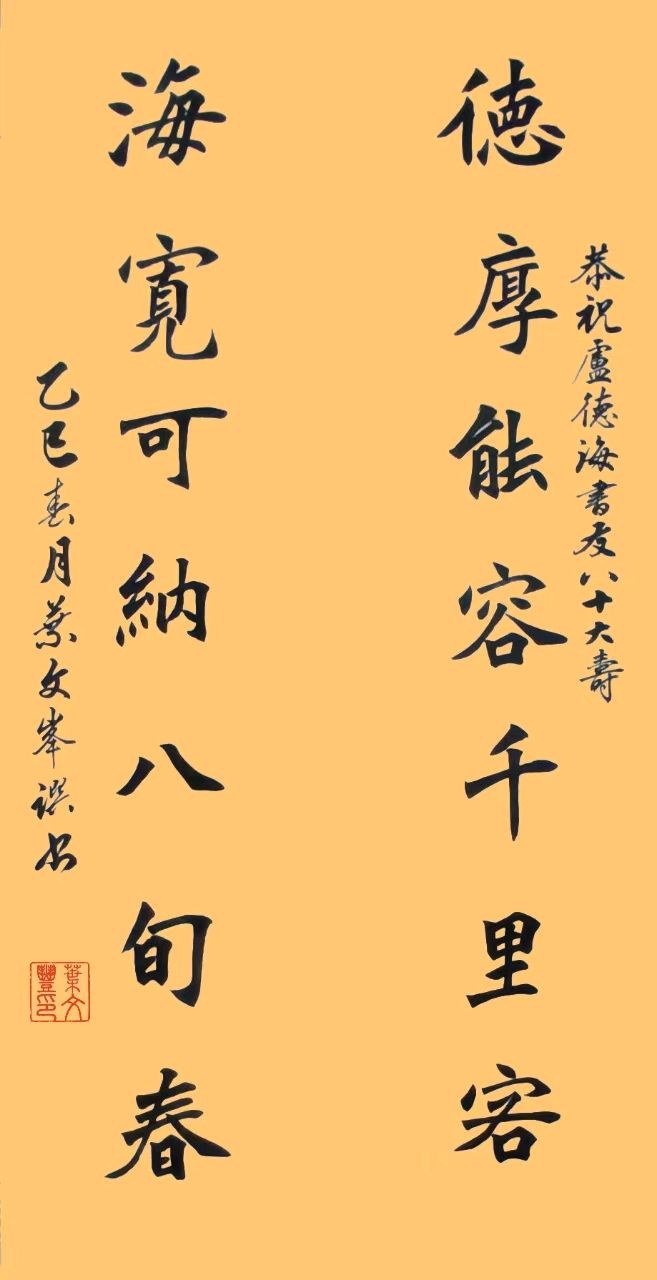 恭祝盧德海書友八十大壽
德厚能容千里客
海寬可納八旬春
乙巳春月葉文峯譔书
葉文
豐印